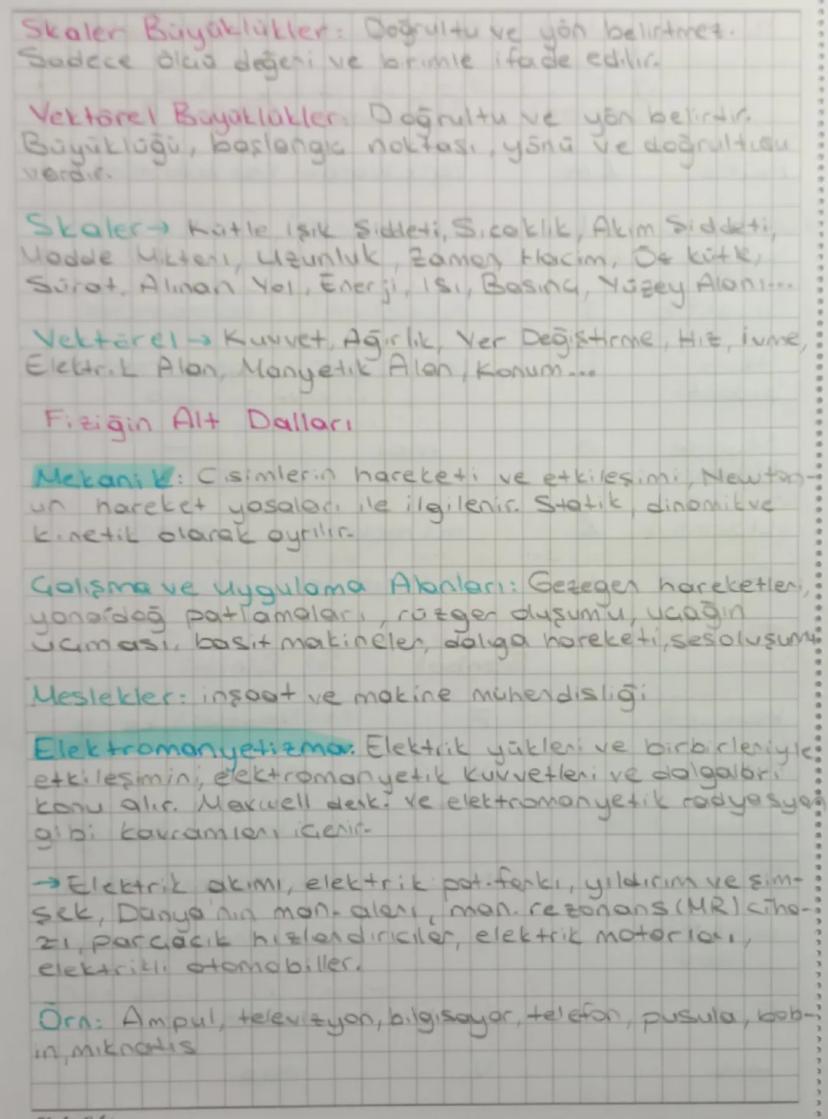 Skaler Büyüklükler: Doğrultu ve yön belirtmez.
Sadece ölçü değeri ve birimle ifade edilir.
Vektörel Büyüklükler: Doğrultu ve yön belirtir.
Büyüklüğü, başlangıç noktası, yönü ve doğrultusu
vardır.
Skaler → Kütle Işık Şiddeti, Sıcaklık, Akım Şiddeti,
Madde Miktarı, Uzunluk, Zaman, Hacim, Öz kütle,
Sürat, Alınan Yol, Enerji, Isı, Basınç, Yüzey Alanı...
Vektörel → Kuvvet, Ağırlık, Yer Değiştirme, Hız, İvme,
Elektrik Alan, Manyetik Alan, Konum...
Fiziğin Alt Dalları
Mekanik: Cisimlerin hareketi ve etkileşimi, Newton-
un hareket yasaları ile ilgilenir. Statik, dinamik ve
kinetik olarak ayrılır.
Çalışma ve Uygulama Alanları: Gezegen hareketleri,
yanardağ patlamaları, rüzgar oluşumu, uçağın
uçması, basit makineler, dalga hareketi, ses oluşumu
Meslekler: inşaat ve makine mühendisliği
Elektromanyetizma: Elektrik yükleri ve birbirleriyle
etkileşimini, elektromanyetik kuvvetleri ve dalgaları
konu alır. Maxwell denk. ve elektromanyetik radyasyon
gibi kavramları içerir.
→ Elektrik akımı, elektrik pot. farkı, yıldırım ve şim-
şek, Dünya'nın man. alanı, man. rezonans (MR) ciha-
zı, parçacık hızlandırıcılar, elektrik motorları,
elektrikli otomobiller.
Örn: Ampul, televizyon, bilgisayar, telefon, pusula, bob-
in, mıknatıs